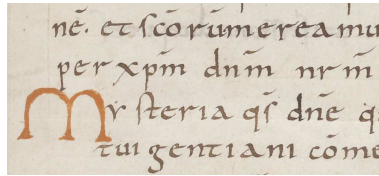 nē. et scōrum ereamu
per xp̄m dn̄m nr̄m
Mysteria qs̄ dn̄e q
tui gentiani cōme